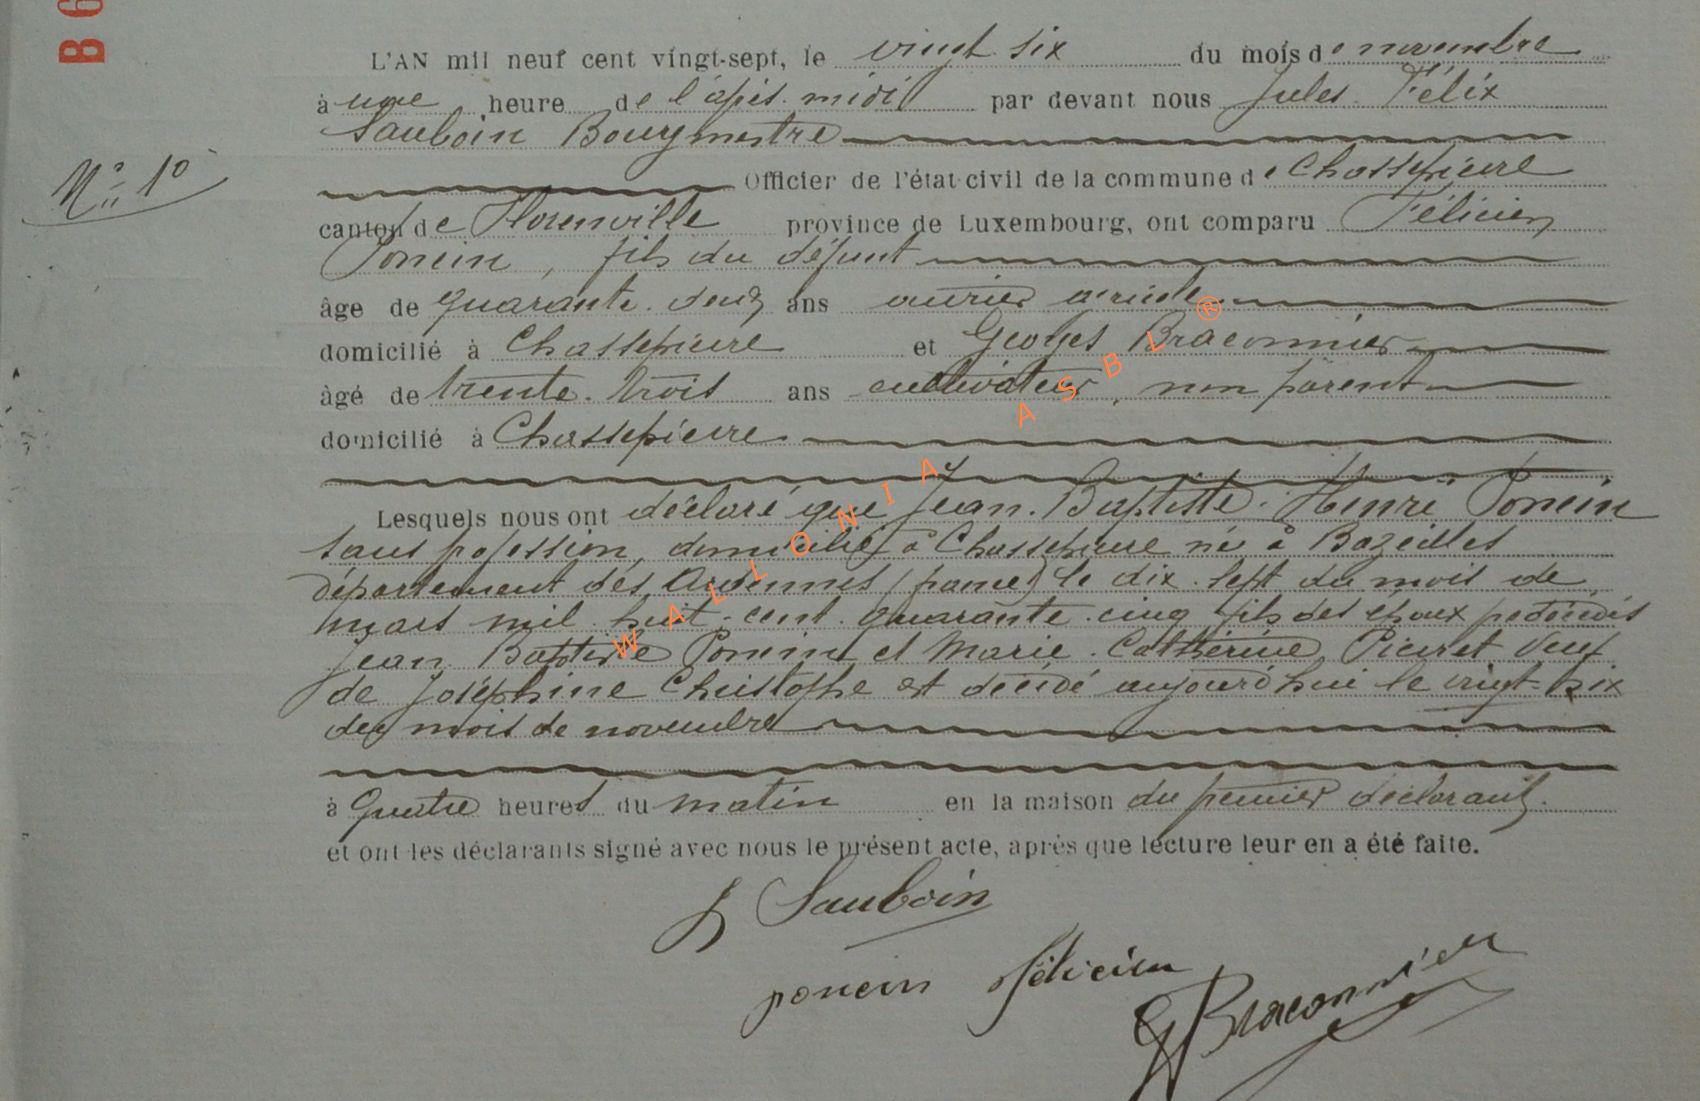 B 6
L'AN mil neuf cent vingt-sept, le vingt six du mois de novembre
à une heure de l'après-midi par devant nous Jules Félix
Sauboin Bourgmestre
N° 10
Officier de l'état civil de la commune de Chassepierre
canton de Florenville province de Luxembourg, ont comparu Félicien
Poncin, fils du défunt
âge de quarante-deux ans ouvrier agricole
domicilié à Chassepierre et Georges Braconnier
âgé de trente-trois ans cultivateur, non parent
domicilié à Chassepierre
Lesquels nous ont déclaré que Jean-Baptiste-Henri Poncin
sans profession, domicilié à Chassepierre né à Bazeilles
département des Ardennes (france) le dix-sept du mois de
mars mil huit-cent-quarante-cinq fils des époux prédécédés
Jean Baptiste Poncin et Marie-Catherine Pierret veuf
de Joséphine Christophe est décédé aujourd'hui le vingt-six
du mois de novembre
à quatre heures du matin en la maison du premier déclarant.
et ont les déclarants signé avec nous le présent acte, après que lecture leur en a été faite.
J Sauboin
poncin félicien
G Braconnier
WALLONIA ASBL ®